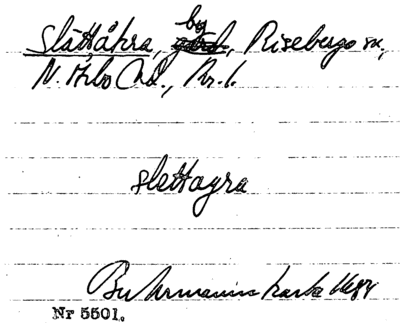 Slättåkra, by, Riseberga sn,
N. Åsbo hd., Kr. l.
slettagra
Buhrmanns karta 1684
Nr 5501.